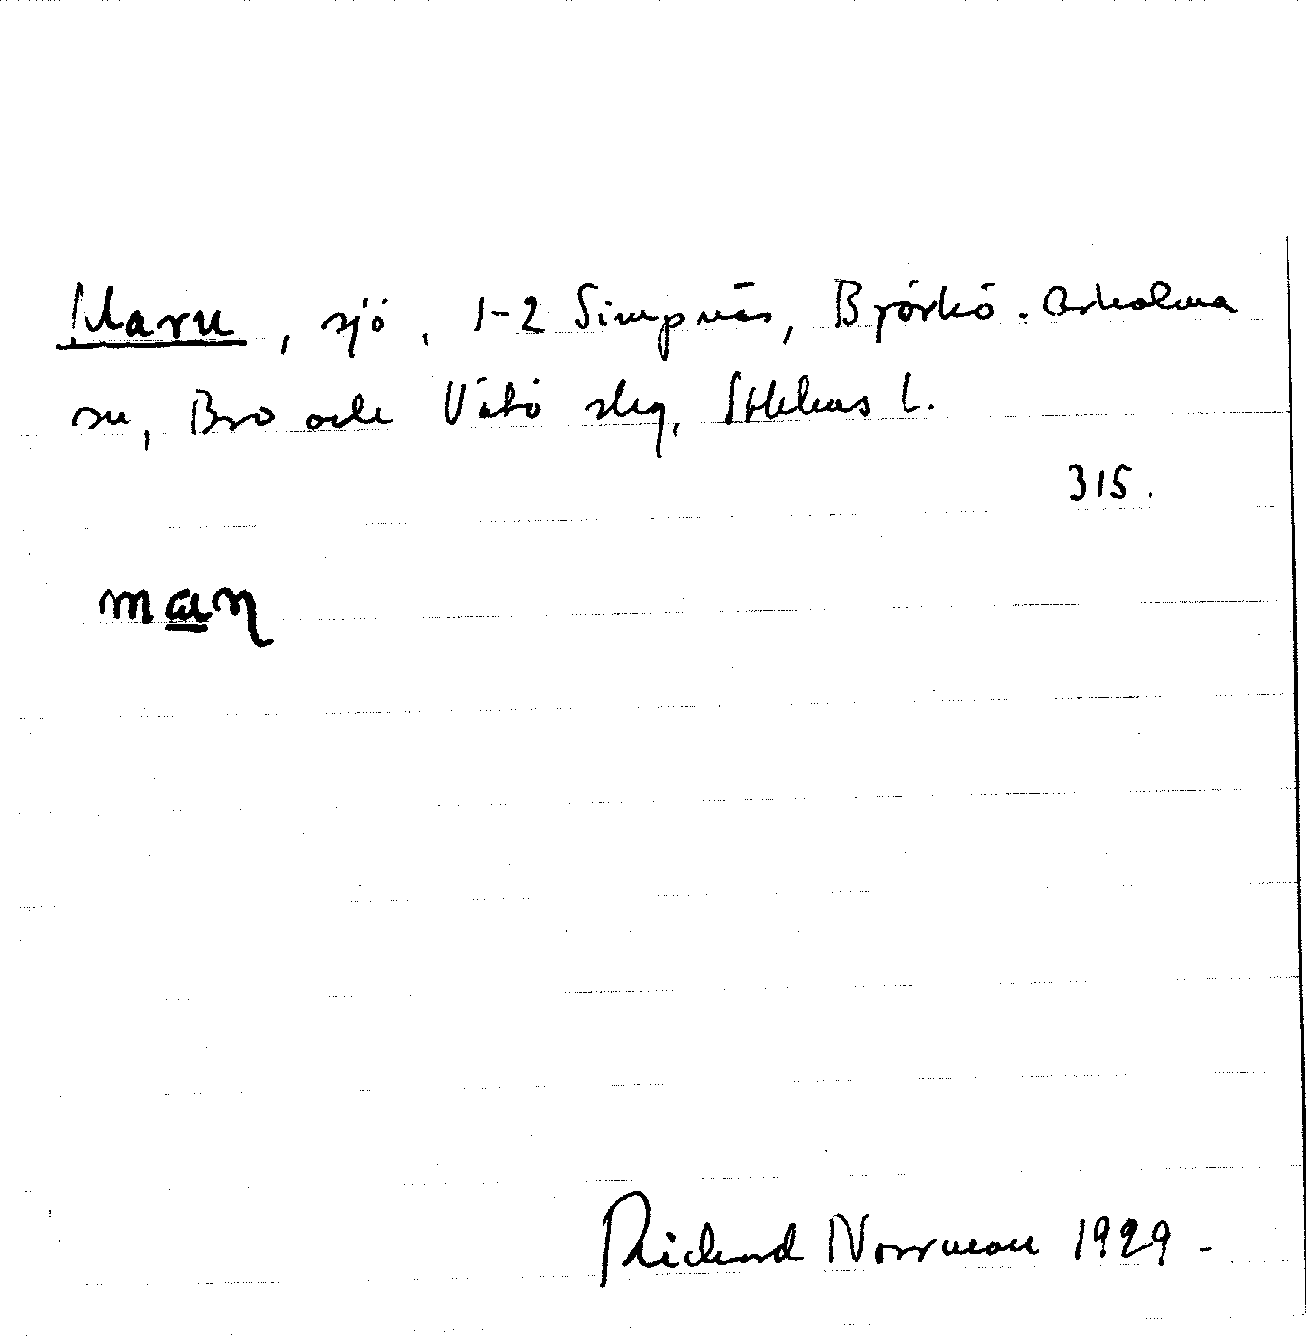 Marn, sjö, 1-2 Simpnäs, Björkö-Arholma
sn, Bro och Vätö skg, Sthlms l.
315.
man
Richard Norrman 1929 -